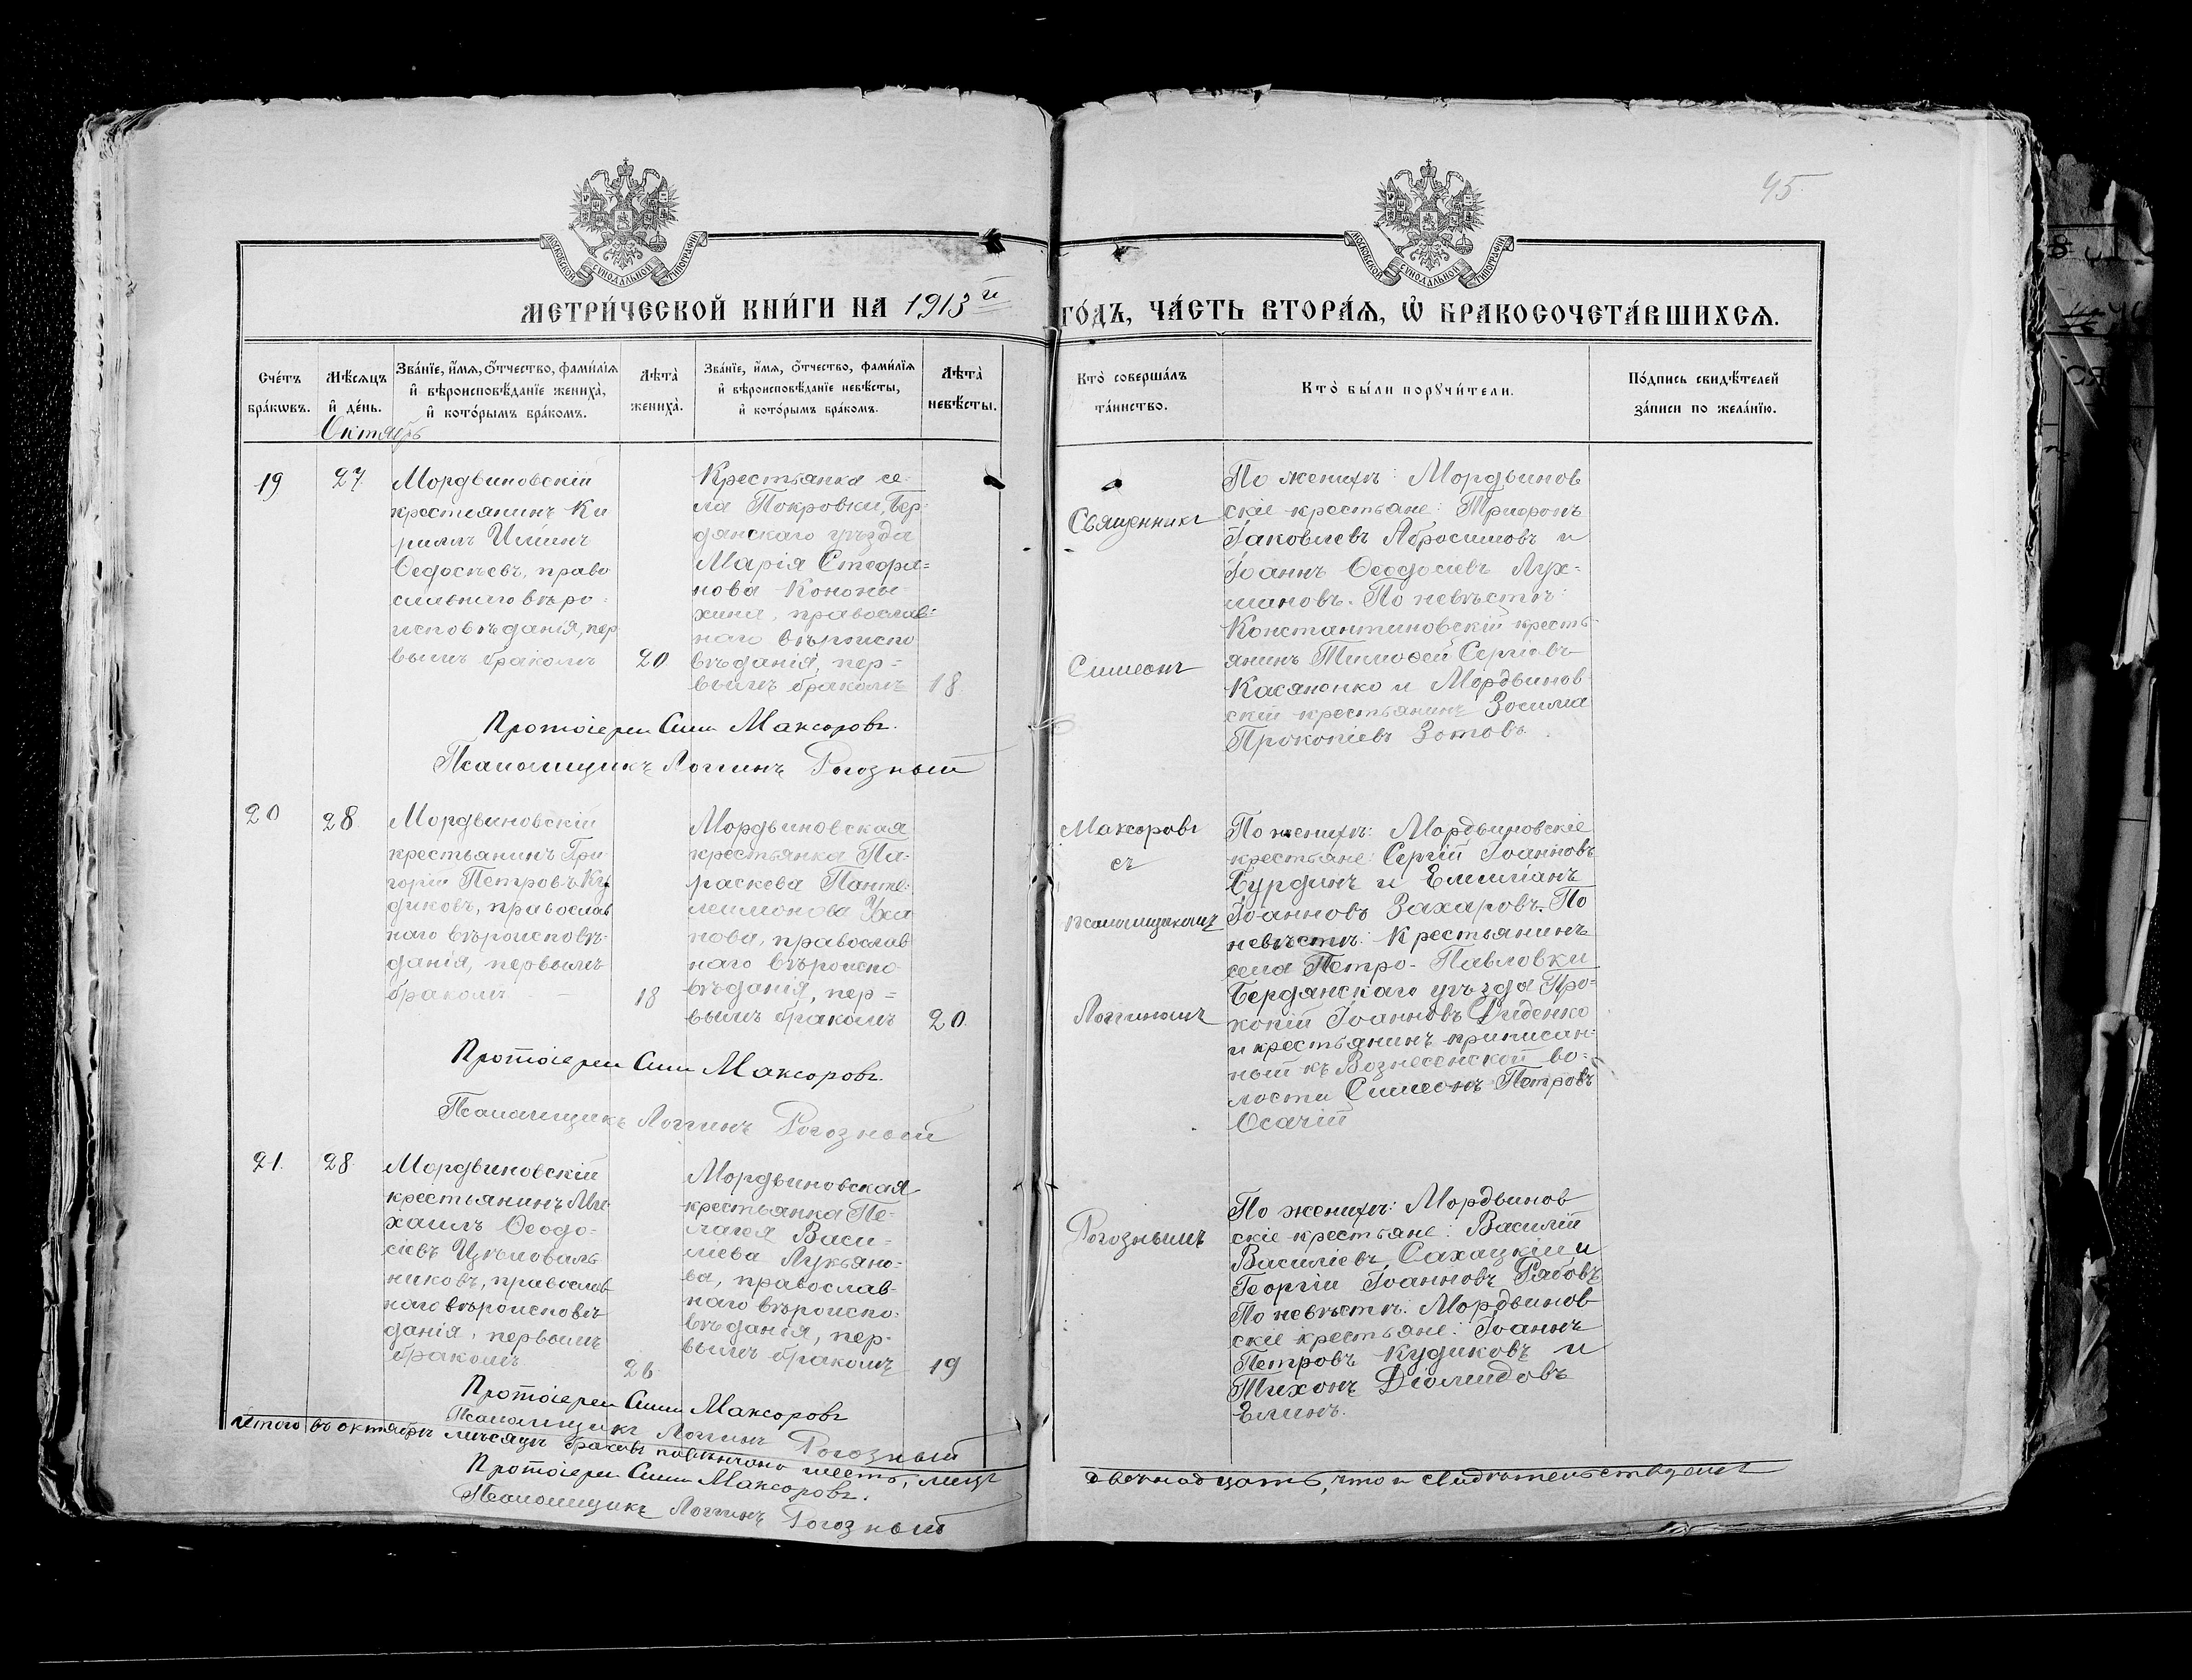 45.
МОСКОВСКОЙ СУНОДАЛЬНОЙ ТИПОГРАФІИ
МОСКОВСКОЙ СУНОДАЛЬНОЙ ТИПОГРАФІИ
МЕТРИ́ЧЕСКОЙ КНИ́ГИ НА 1913 й ГО́ДЪ, ЧА́СТЬ ВТОРА́Я, Ѡ БРАКОСОЧЕТА́ВШИХСЯ.
Сче́тъ
бра́кѡвъ.
Мѣ́сяцъ
и҆ де́нь.
Октябрь
Зва́нїе, и҆́мя, ѻ҆́тчество, фами́лїя
и҆ вѣроисповѣ́данїе жениха̀,
и҆ кото́рымъ бра́комъ.
Лѣта̀
жениха̀.
Зва́нїе, и҆́мя, ѻ҆́тчество, фами́лїя
и҆ вѣроисповѣ́данїе невѣ́сты,
и҆ кото́рымъ бра́комъ.
Лѣта̀
невѣ́сты.
Кто̀ соверша́лъ
та́инство.
Кто̀ бы́ли порꙋчи́тели.
По́дпись свидѣ́телей
за́писи по жела́нїю.
19
27
Мордвиновскій
крестьянинъ Ки
риллъ Ильинъ
Ѳедосѣевъ, право
славнаго вѣро-
исповѣданія, пер
вымъ бракомъ
20
Крестьянка се-
ла Покровки, Бер-
дянскаго уѣзда
Марія Стефа=
нова Кононы
хина, православ=
наго вѣроиспо
вѣданія, пер=
вымъ бракомъ
18
Священникъ
Симеонъ
По женихѣ: Мордвинов
скіе крестьяне: Трифонъ
Іаковлевъ Абросимовъ и
Іоаннъ Ѳеодосіевъ Лух-
мановъ. По невѣстѣ:
Константиновскій кресть-
янинъ Тимоѳей Сергіевъ
Касяненко и Мордвинов
скій крестьянинъ Зосима
Прокопіевъ Зотовъ.
Протоіерей Сим Максоровъ.
Псаломщикъ Логгинъ Рогозный
20
28
Мордвиновскій
крестьянинъ Гри
горій Петровъ Ку
диковъ, православ
наго вѣроисповѣ-
данія, первымъ
бракомъ
18
Мордвиновская
крестьянка Па-
раскева Панте-
леимонова
нова, православ
наго вѣроиспо
вѣданія, пер=
вымъ бракомъ
20.
Максоровъ
съ
псаломщикомъ
Логгиномъ
По женихѣ: Мордвиновскіе
крестьяне: Сергій Іоанновъ
Бурдинъ и Емиліанъ
Іоанновъ Захаровъ. По
невѣстѣ: Крестьянинъ
села Петро-Павловки
Бердянскаго уѣзда Про-
копій Іоанновъ Диденко
и крестьянинъ приписан-
ный къ Вознесенской во-
лости Симеонъ Петровъ
Осачій
Протоіерей Сим Максоровъ.
Псаломщикъ Логгинъ Рогозный
21.
28.
Мордвиновскій
крестьянинъ Ми
хаилъ Ѳеодо-
сіевъ Цѣловаль
никовъ, православ
наго вѣроисповѣ
данія, первымъ
бракомъ
26
Мордвиновская
крестьянка Пе-
лагея Васи-
ліева Лукьяно-
ва, православ-
наго вѣроиспо-
вѣданія, пер-
вымъ бракомъ
19
Рогознымъ
По женихѣ: Мордвинов
скіе крестьяне: Василій
Василіевъ Сахацкій и
Георгій Іоанновъ Рябовъ
По невѣстѣ: Мордвинов
скіе крестьяне: Іоаннъ
Петровъ Кудиковъ и
Тихонъ Діомидовъ
Елинъ.
Протоіерей Сим Максоровъ
Псаломщикъ Логгинъ Рогозный
Итого въ октябрѣ мѣсяцѣ браковъ повѣнчано шесть, лицъ двенадцать, что и свидѣтельствуемъ
Протоіерей Сим Максоровъ.
Псаломщикъ Логгинъ Рогозный